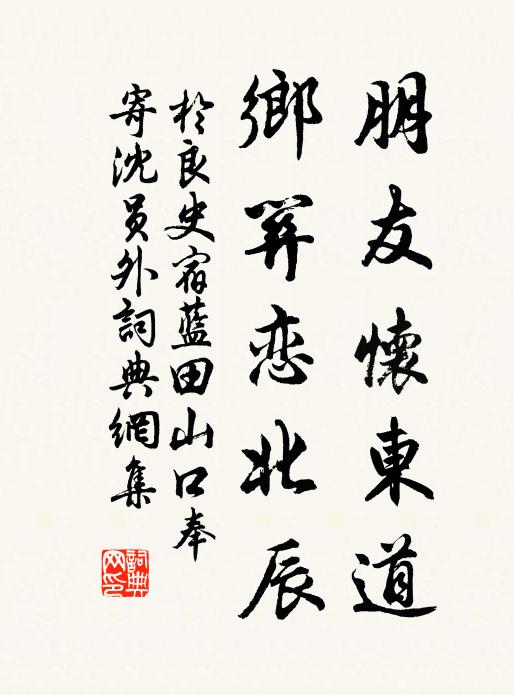 朋友懷東道
鄉關恋北辰
於良史宿藍田山口奉
寄沈員外詞典網集
詞典
网印